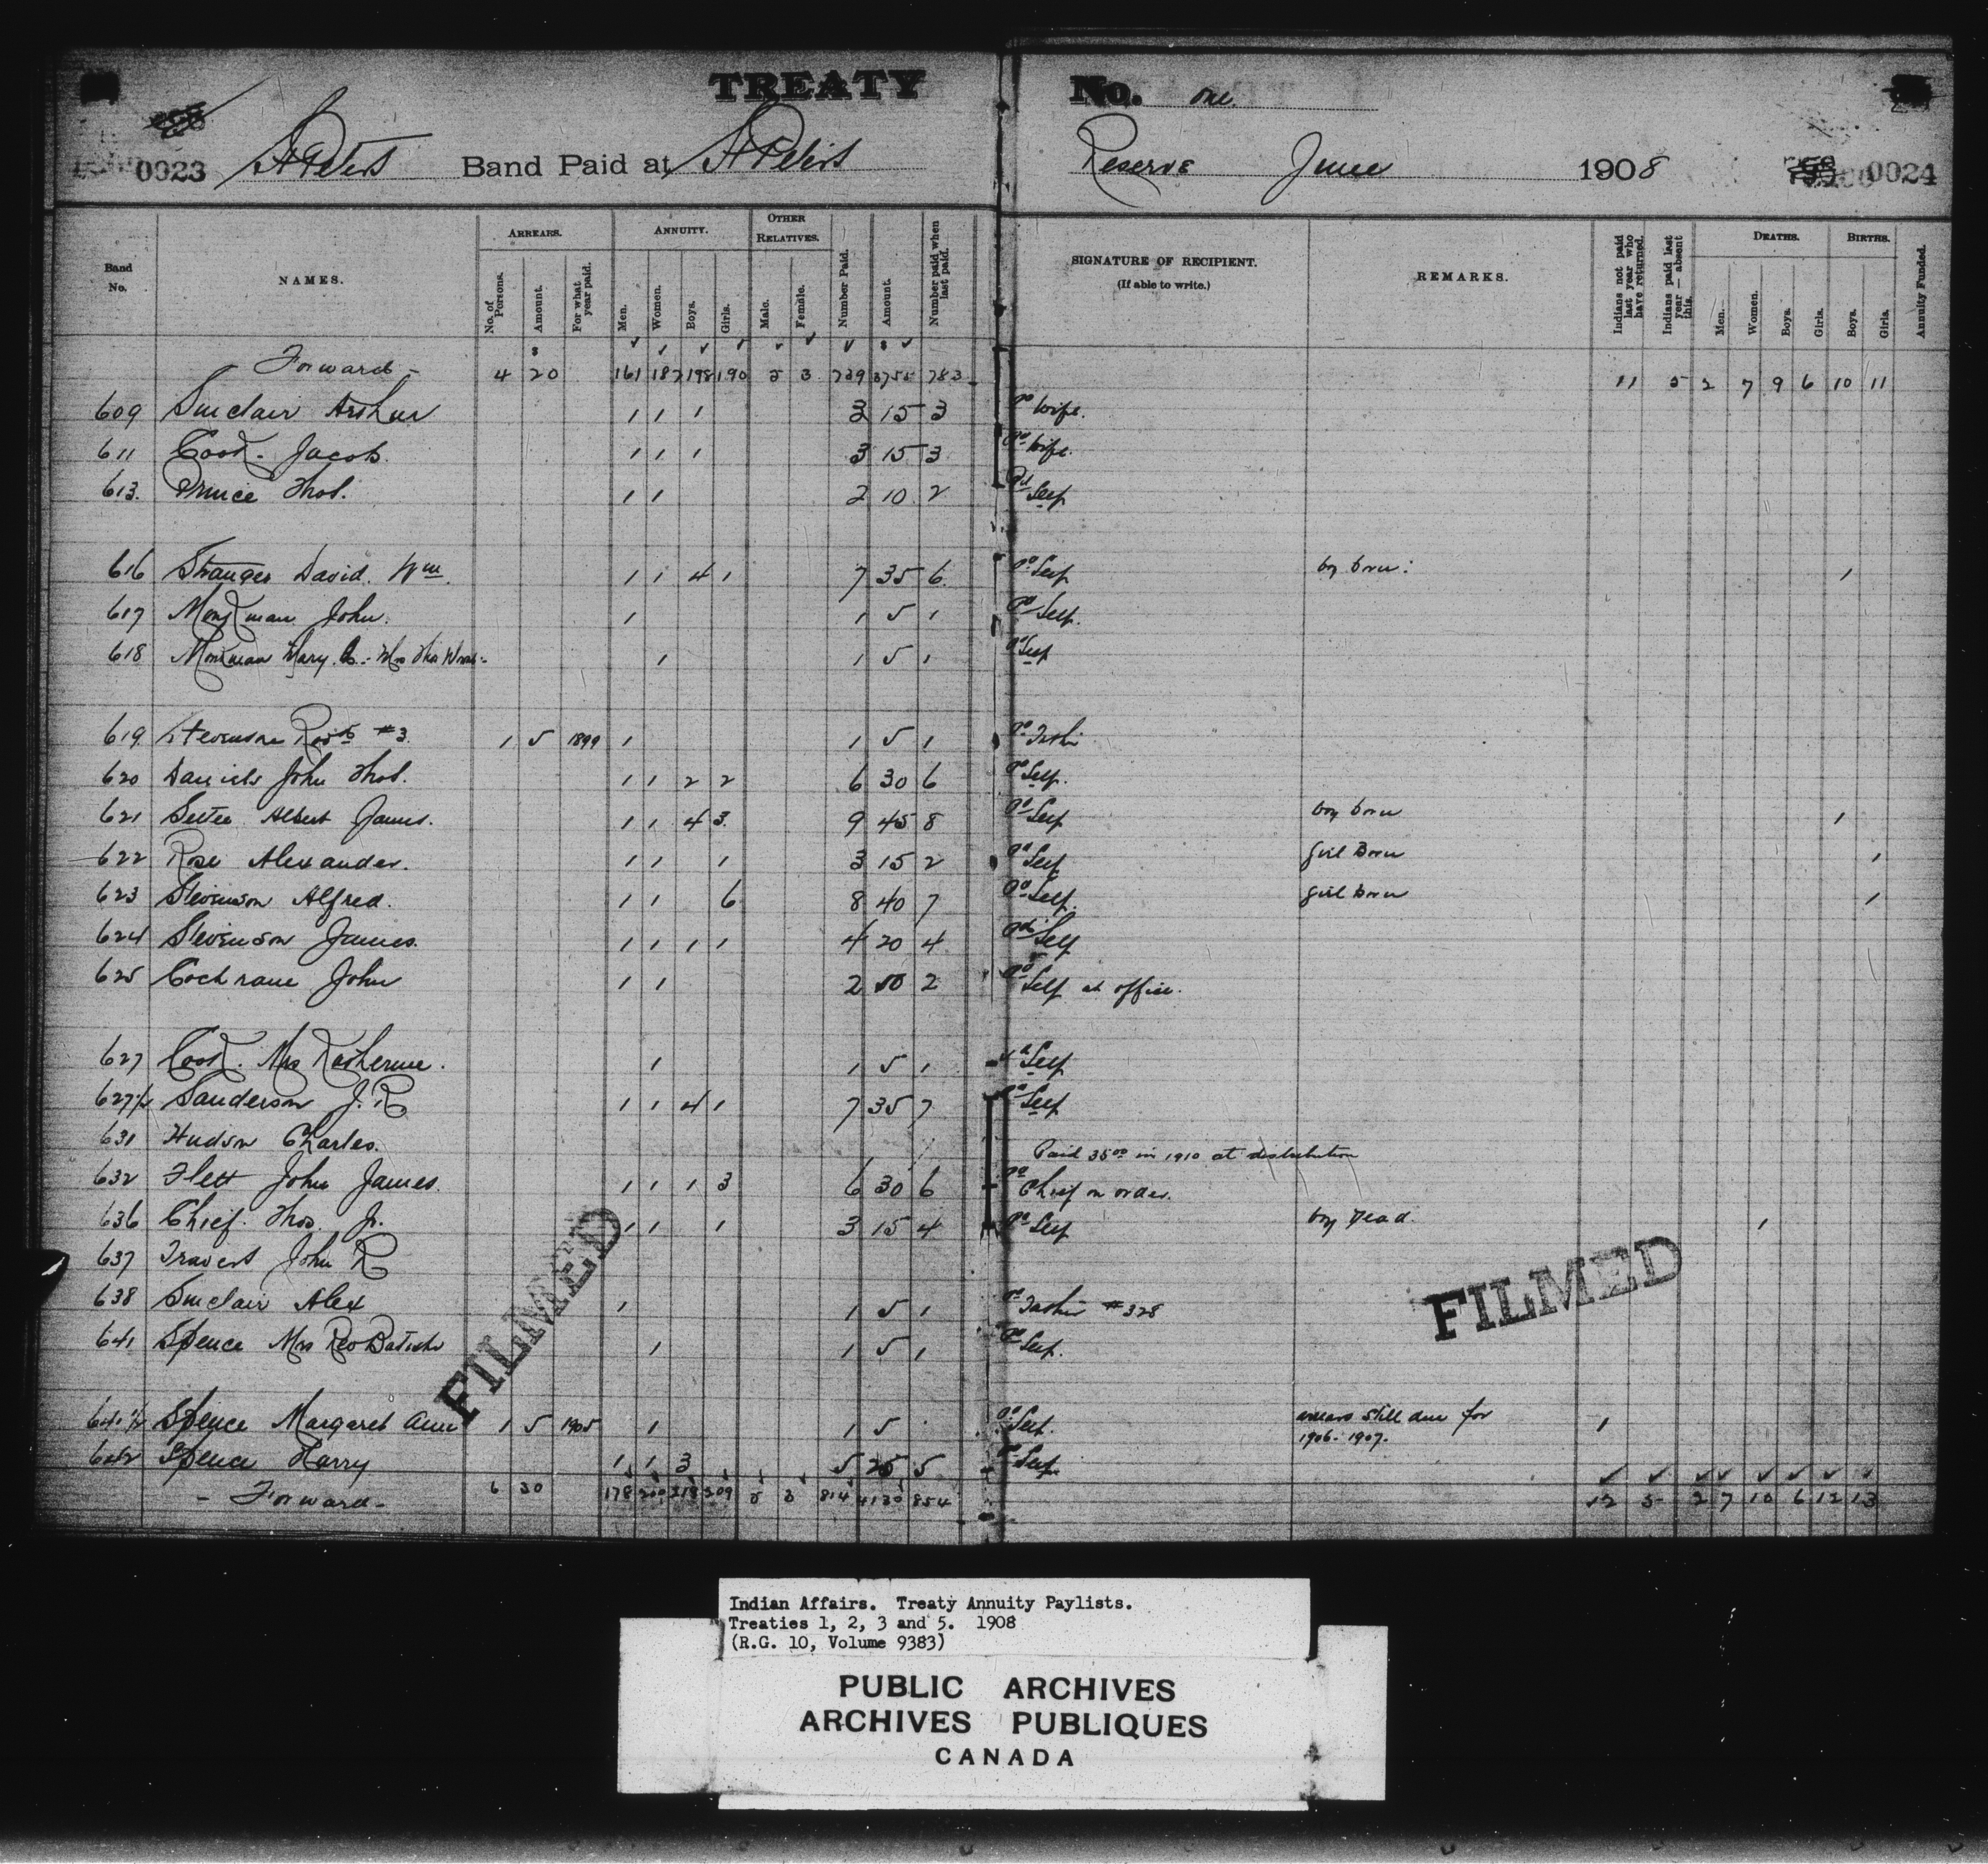 TREATY No. one.
0023 St Peters Band Paid at St Peters Reserve June 1908 0024
Band No. NAMES. ARREARS. No. of Persons. Amount. For what year paid. ANNUITY. Men. Women. Boys. Girls. OTHER RELATIVES. Male. Female. Number Paid. Amount. Number paid when last paid. SIGNATURE OF RECIPIENT. (If able to write.) REMARKS. Indians not paid last year who have returned. Indians paid last year — absent this. DEATHS. Men. Women. Boys. Girls. BIRTHS. Boys. Girls. Annuity Funded.
Forward - 4 20 161 187 198 190 5 3 739 3755 783 11 5 2 7 9 6 10 11
609 Sinclair Arthur 1 1 1 3 15 3 Pd Wife.
611 Cook. Jacob. 1 1 1 3 15 3 Pd Wife.
613. Prince Thos. 1 1 2 10 2 Pd Self
616 Stranger David. Wm. 1 1 4 1 7 35 6. Pd Self boy born. 1
617 Monkman John. 1 1 5 1 Pd Self.
618 Monkman Mary 1 1 5 1 Pd Self
619 Stevenson Robt #3. 1 5 1899 1 1 5 1 Pd
620 Daniels John Thos. 1 1 2 2 6 30 6 Pd Self.
621 Settee Albert James. 1 1 4 3. 9 45 8 Pd Self boy born 1
622 Rose Alexander. 1 1 1 3 15 2 Pd Self girl Born 1
623 Stevenson Alfred. 1 1 6 8 40 7 Pd Self. girl born 1
624 Stevenson James. 1 1 1 1 4 20 4 Pd Self
625 Cochrane John 1 1 2 10 2 Pd Self at office.
627 Cook. Mrs Katherine. 1 1 5 1 Pd Self
627½ Sanderson J. R 1 1 4 1 7 35 7 Pd Self
631 Hudson Charles. Paid 35.00 in 1910 at distribution
632 Flett John James. 1 1 1 3 6 30 6 Pd Chief on order.
636 Chief. Thos. Jr. 1 1 1 3 15 4 Pd Self boy Dead. 1
637 Travers John R
638 Sinclair Alex 1 1 5 1 Pd #328
641 Spence Mrs Rev Batiste 1 1 5 1 Pd Self.
641½ Spence Margaret Ann 1 5 1905 1 1 5 Pd Self. arrears still due for 1
1906-1907.
642 Spence Harry 1 1 3 5 25 5 Pd Self.
- Forward - 6 30 178 200 218 209 5 3 814 4130 854 12 5 2 7 10 6 12 13
FILMED
FILMED
Indian Affairs. Treaty Annuity Paylists.
Treaties 1, 2, 3 and 5. 1908
(R.G. 10, Volume 9383)
PUBLIC ARCHIVES
ARCHIVES PUBLIQUES
CANADA